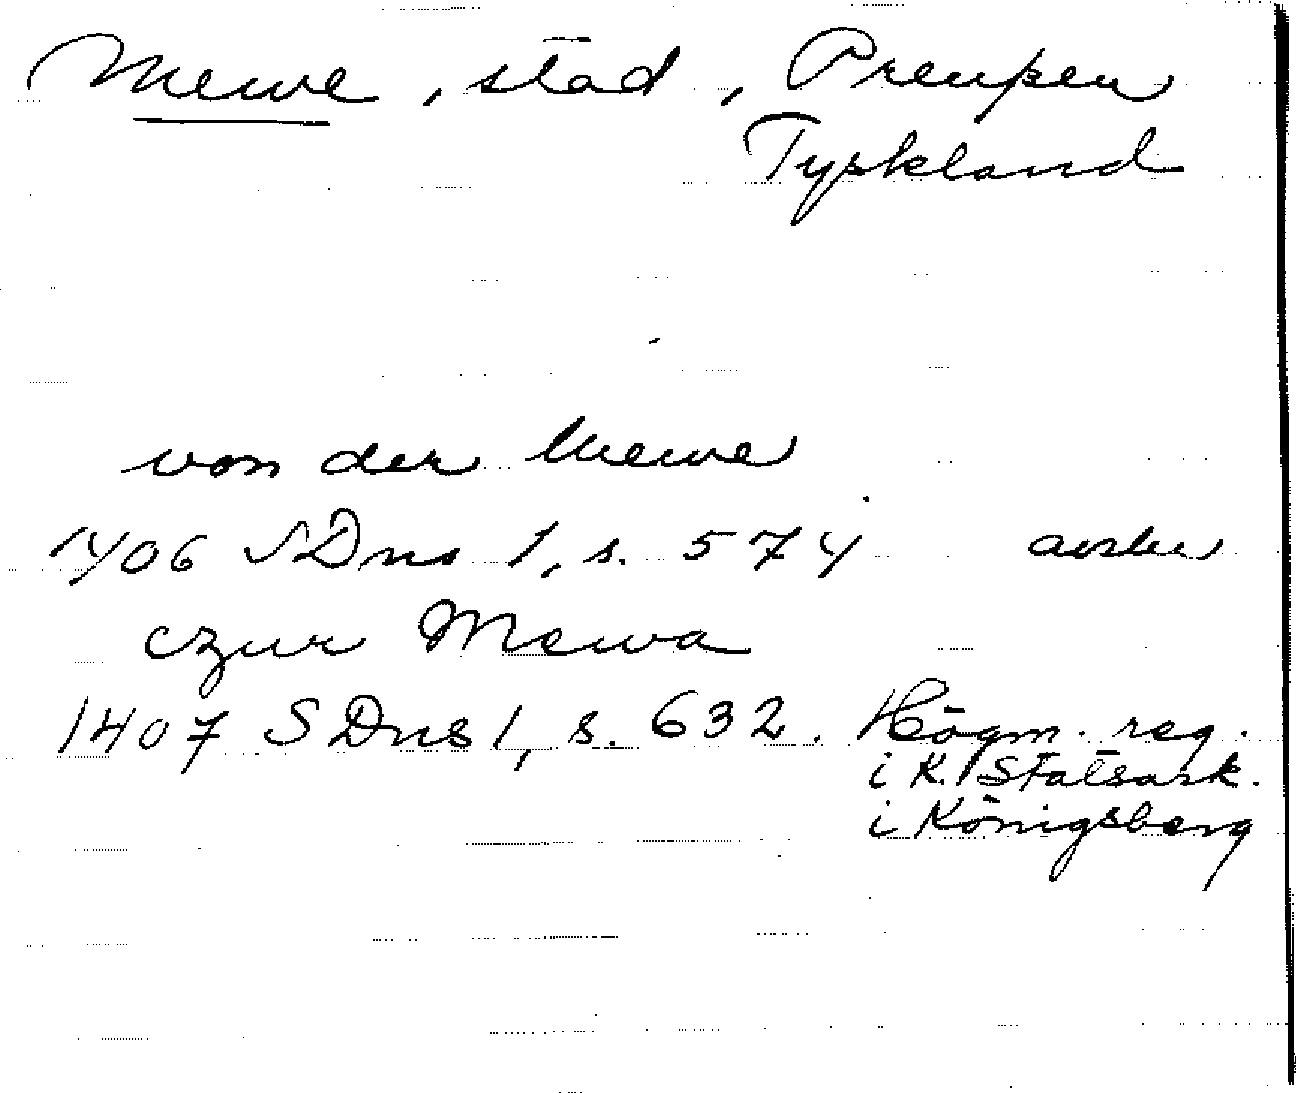 Mewe, stad, Preußen
Tyskland
von der Mewe
1406 SDns 1, s. 574 avskr
czur Mewa
1407 SDns 1, s. 632. Högm. reg.
i K. Statsark.
i Königsberg